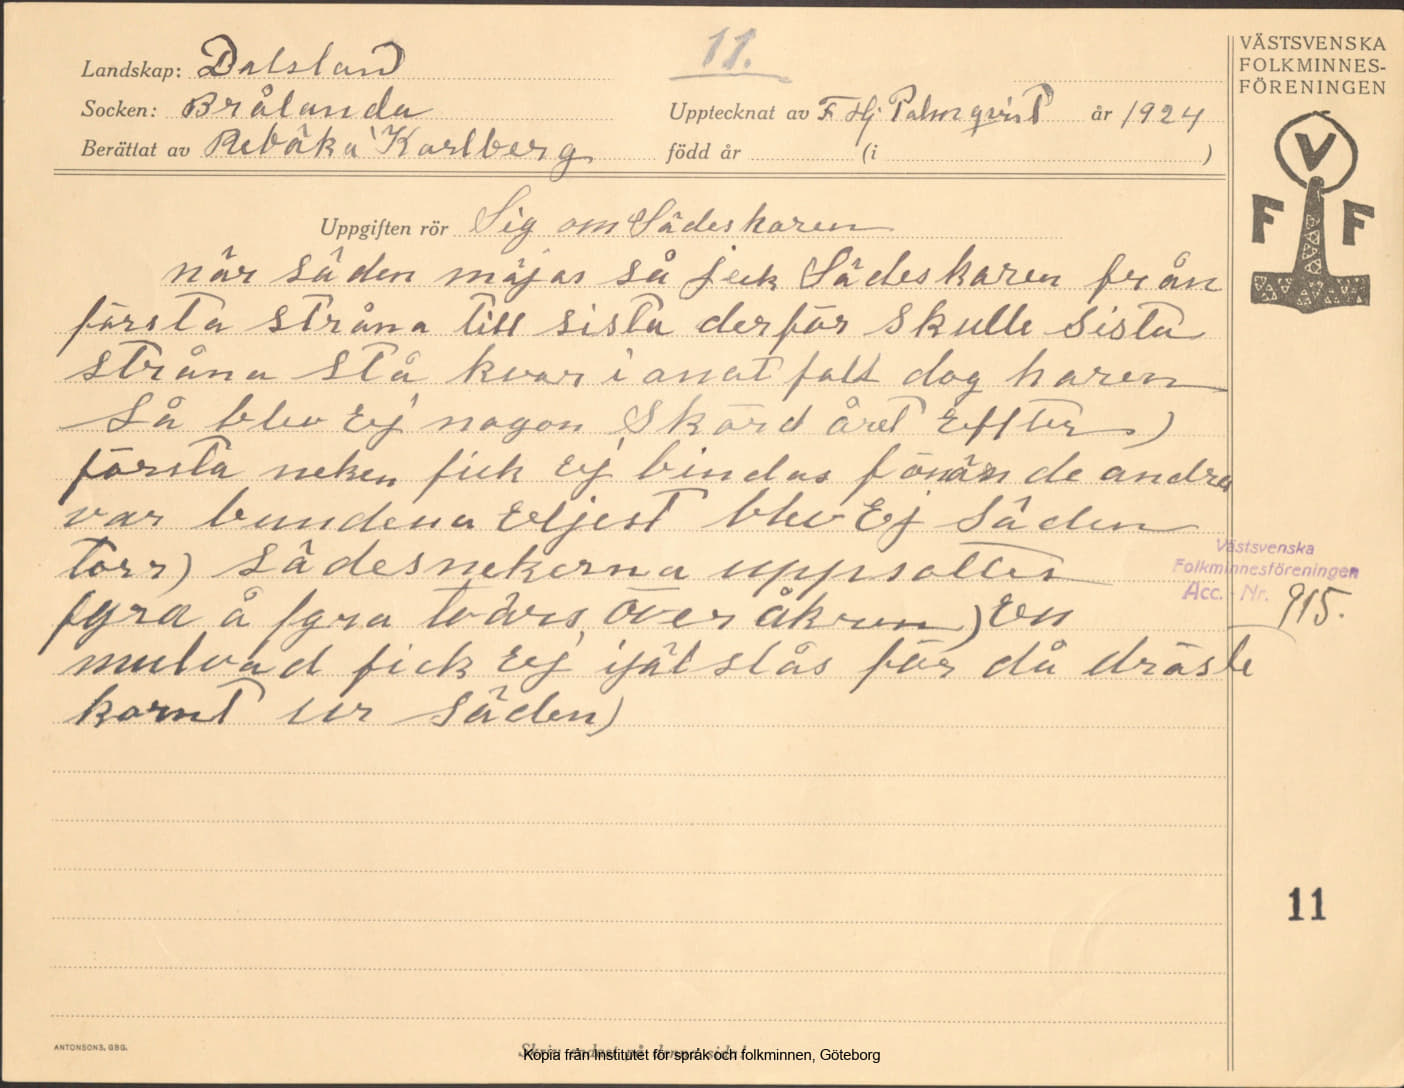 Landskap: Dalsland
11.
VÄSTSVENSKA
FOLKMINNES-
FÖRENINGEN
Socken: Brålanda
Upptecknat av F Hj Palmqvist år 1924
Berättat av Rebäka Karlberg
född år (i )
V
F F
Uppgiften rör Sig om Sädesharen
när säden mäjas så jeck Sädesharen från
första stråna till sista derför skulle sista
stråna stå kvar i anat fall dog haren
Så blev Ej nogon Skörd året Effter)
första neken fick Ej bindas förrän de andra
var bundena Eljest blev Ej Säden
torr) Sädesnekerna uppsattes
fyra å fyra tvärs över åkren) En
mulvad fick Ej ijälslås för då dräste
kornt ur Säden)
Västsvenska
Folkminnesföreningen
Acc. - Nr. 915.
11
ANTONSONS, GBG.
Kopia från Institutet för språk och folkminnen, Göteborg